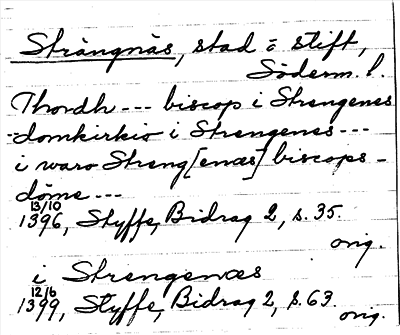 Strängnäs, stad o stift,
Söderm. l.
Thordh --- biscop i Strengenes
-domkirkio i Strengenes ---
i waro Streng[enæs] biscops-
döme ---
13/10
1396, Styffe, Bidrag 2, s. 35.
orig.
i Strengenæs
12/6
1399, Styffe, Bidrag 2, s. 63.
orig.